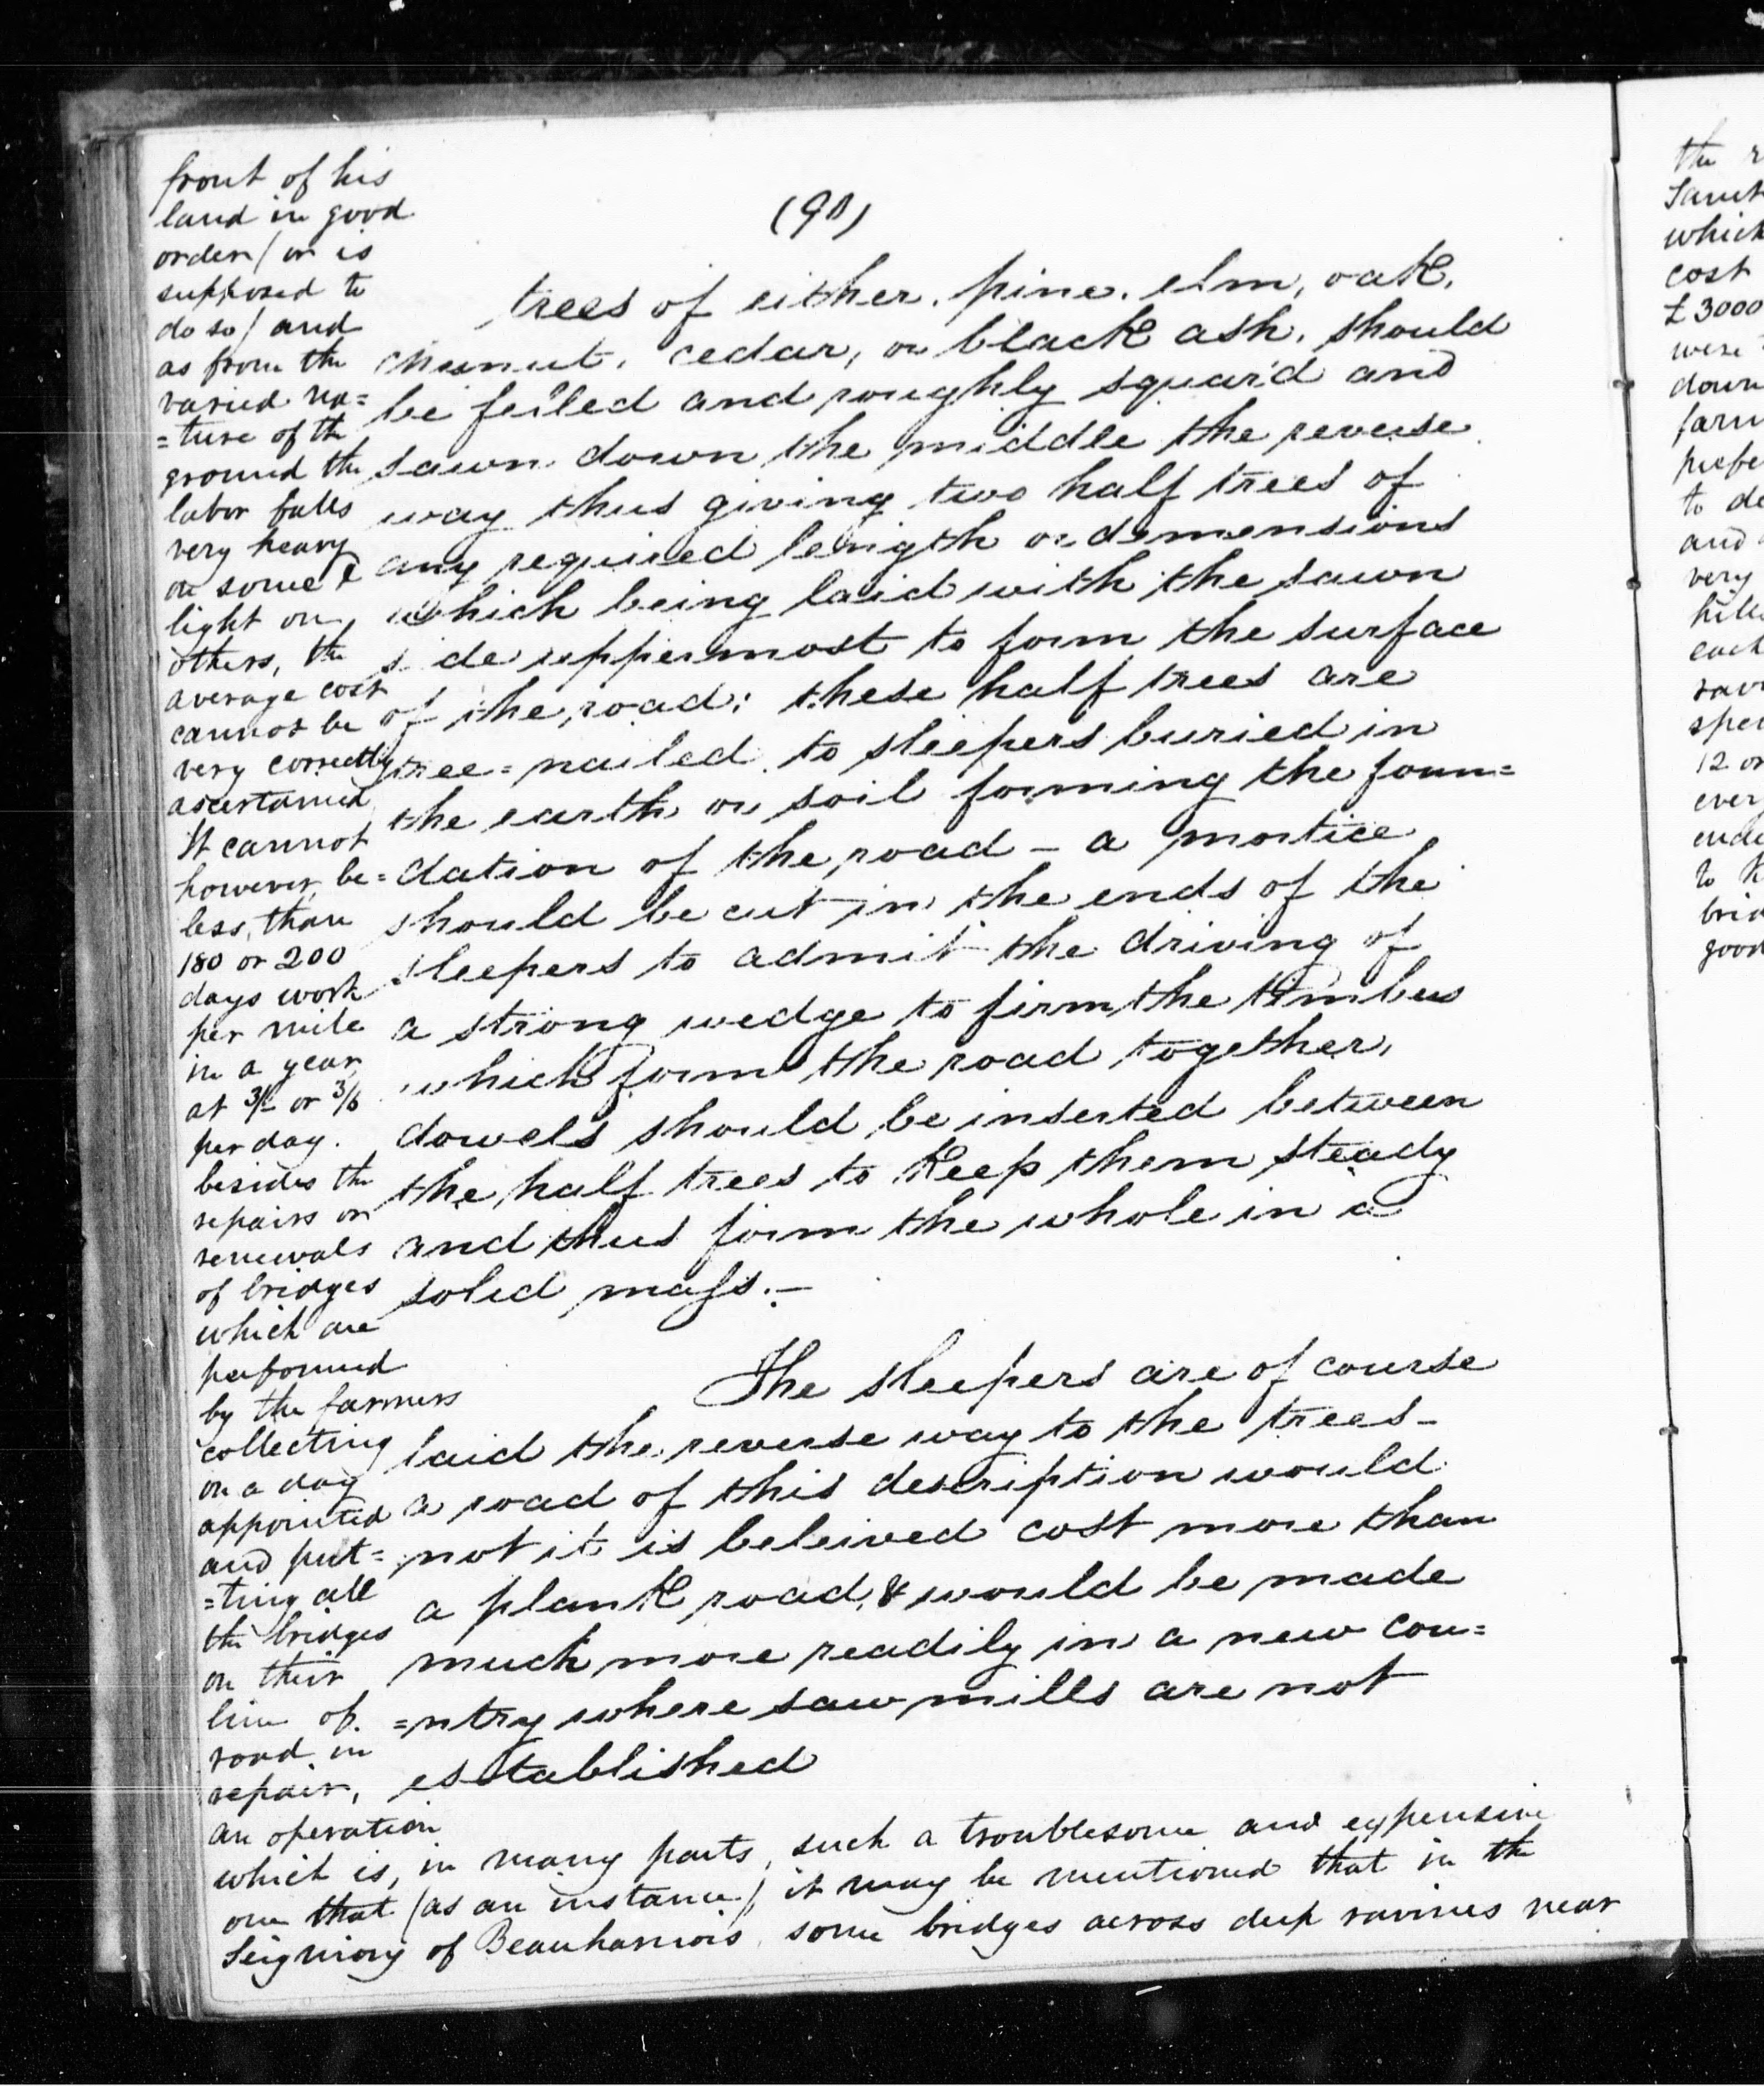 (90)
trees of either. pine. elm, oak.
chesnut. cedar, or black ash. should
be felled and roughly squar'd and
sawn down the middle the reverse
way thus giving two half trees of
any required length or demensions
which being laid with the sawn
side uppermost to form the surface
of the road; these half trees are
tree=nailed to sleepers buried in
the earth or soil forming the foun=
dation of the road – a mortice
should be cut in the ends of the
sleepers to admit the driving of
a strong wedge to firm the timbers
which form the road together,
dowels should be inserted between
the half trees to keep them steady
and thus form the whole in a
solid mass.–
The sleepers are of course
laid the reverse way to the trees–
a road of this description would
not it is beleived cost more than
a plank road, & would be made
much more readily in a new cou=
=ntry where saw mills are not
established
front of his
land in good
order / or is
supposed to
do so / and
as from the
varied na=
=ture of the
ground the
labor falls
very heavy
on some &
light on
others, the
average cost
cannot be
very correctly
ascertained
It cannot
however, be
less, than
180 or 200
days work
per mile
in a year
at 3/- or 3/6
per day.
besides the
repairs or
renewals
of bridges
which are
performed
by the farmers
collecting
on a day
appointed
and put=
=ting all
the bridges
on their
line of
road in
repair,
an operation
which is, in many parts, such a troublesome and expensive
one that (as an instance) it may be mentioned that in the
Seigniory of Beauharnois some bridges across deep ravines near
the
which
cost
£3000
were
down
to de
and
very
12 or
ever
to
good